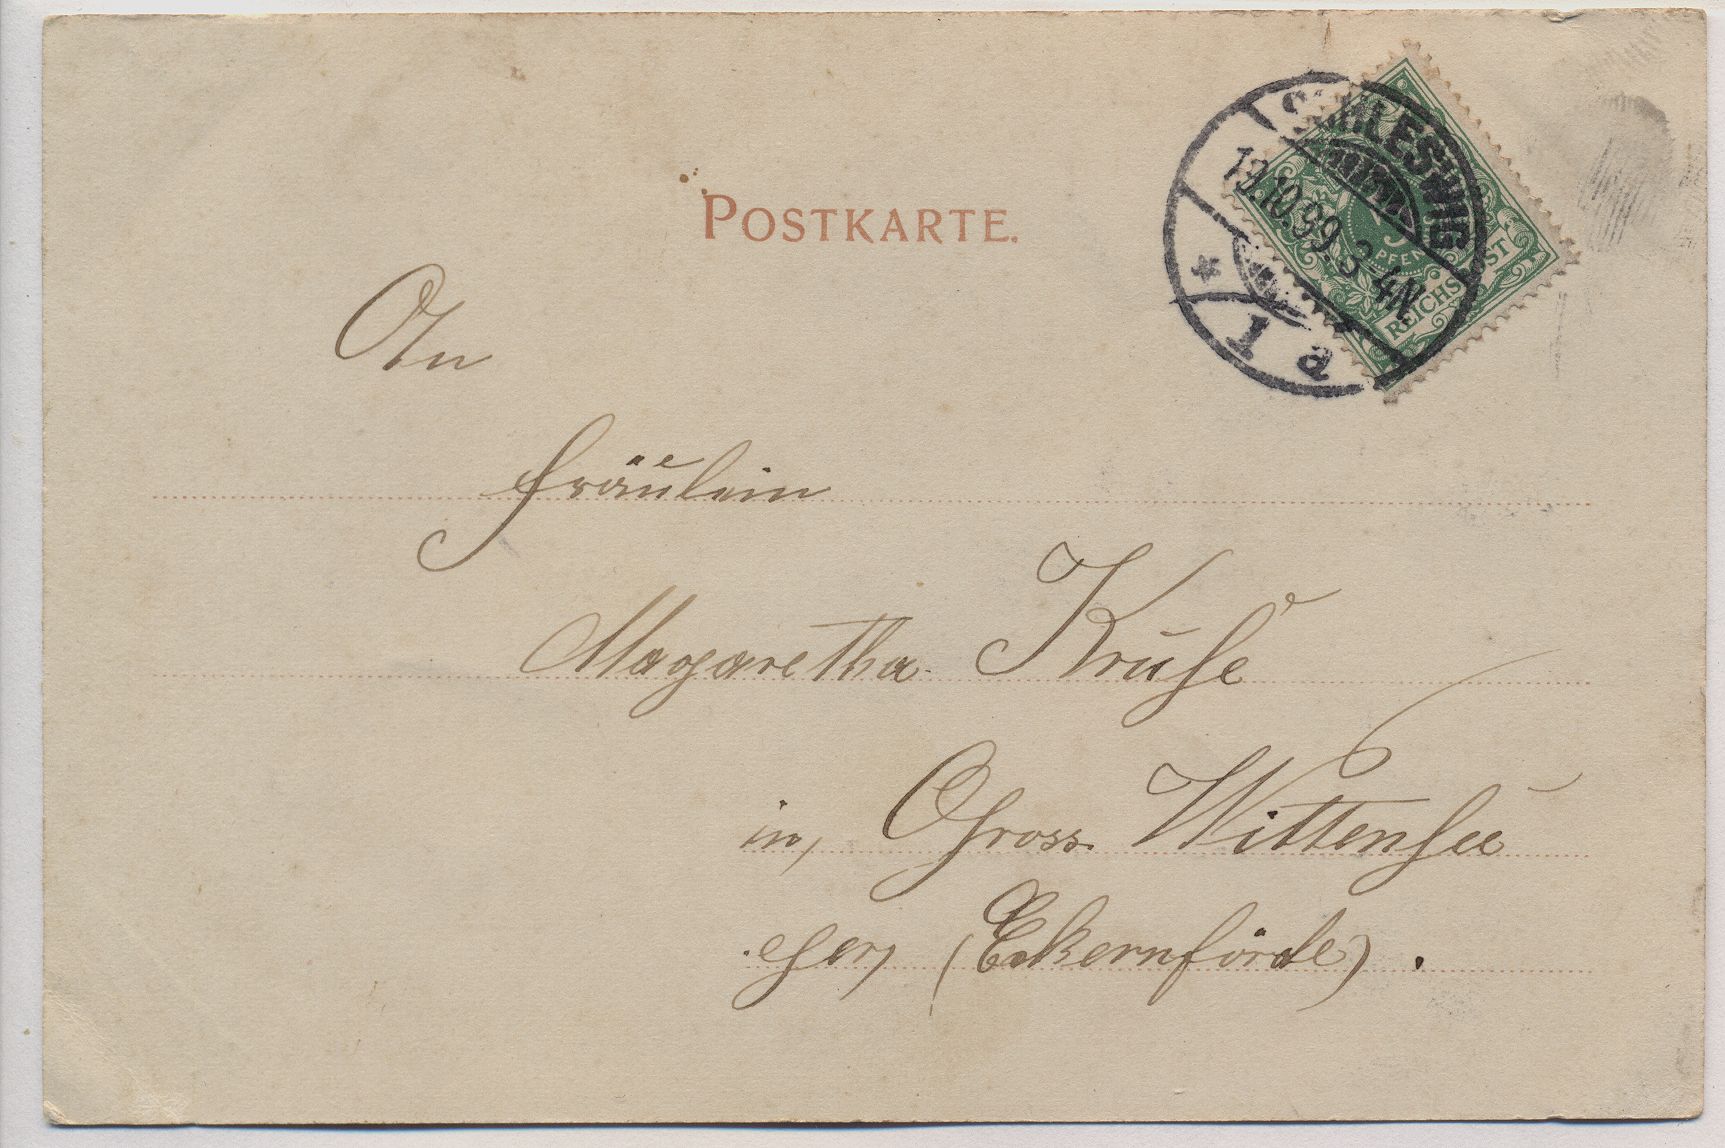 POSTKARTE.
SCHLESWIG
13.10.99.3-4N.
* 1 a
5
PFENNIG
REICHSPOST
An
Fräulein
Margaretha Kruse
in Gross Wittensee
(Eckernförde).